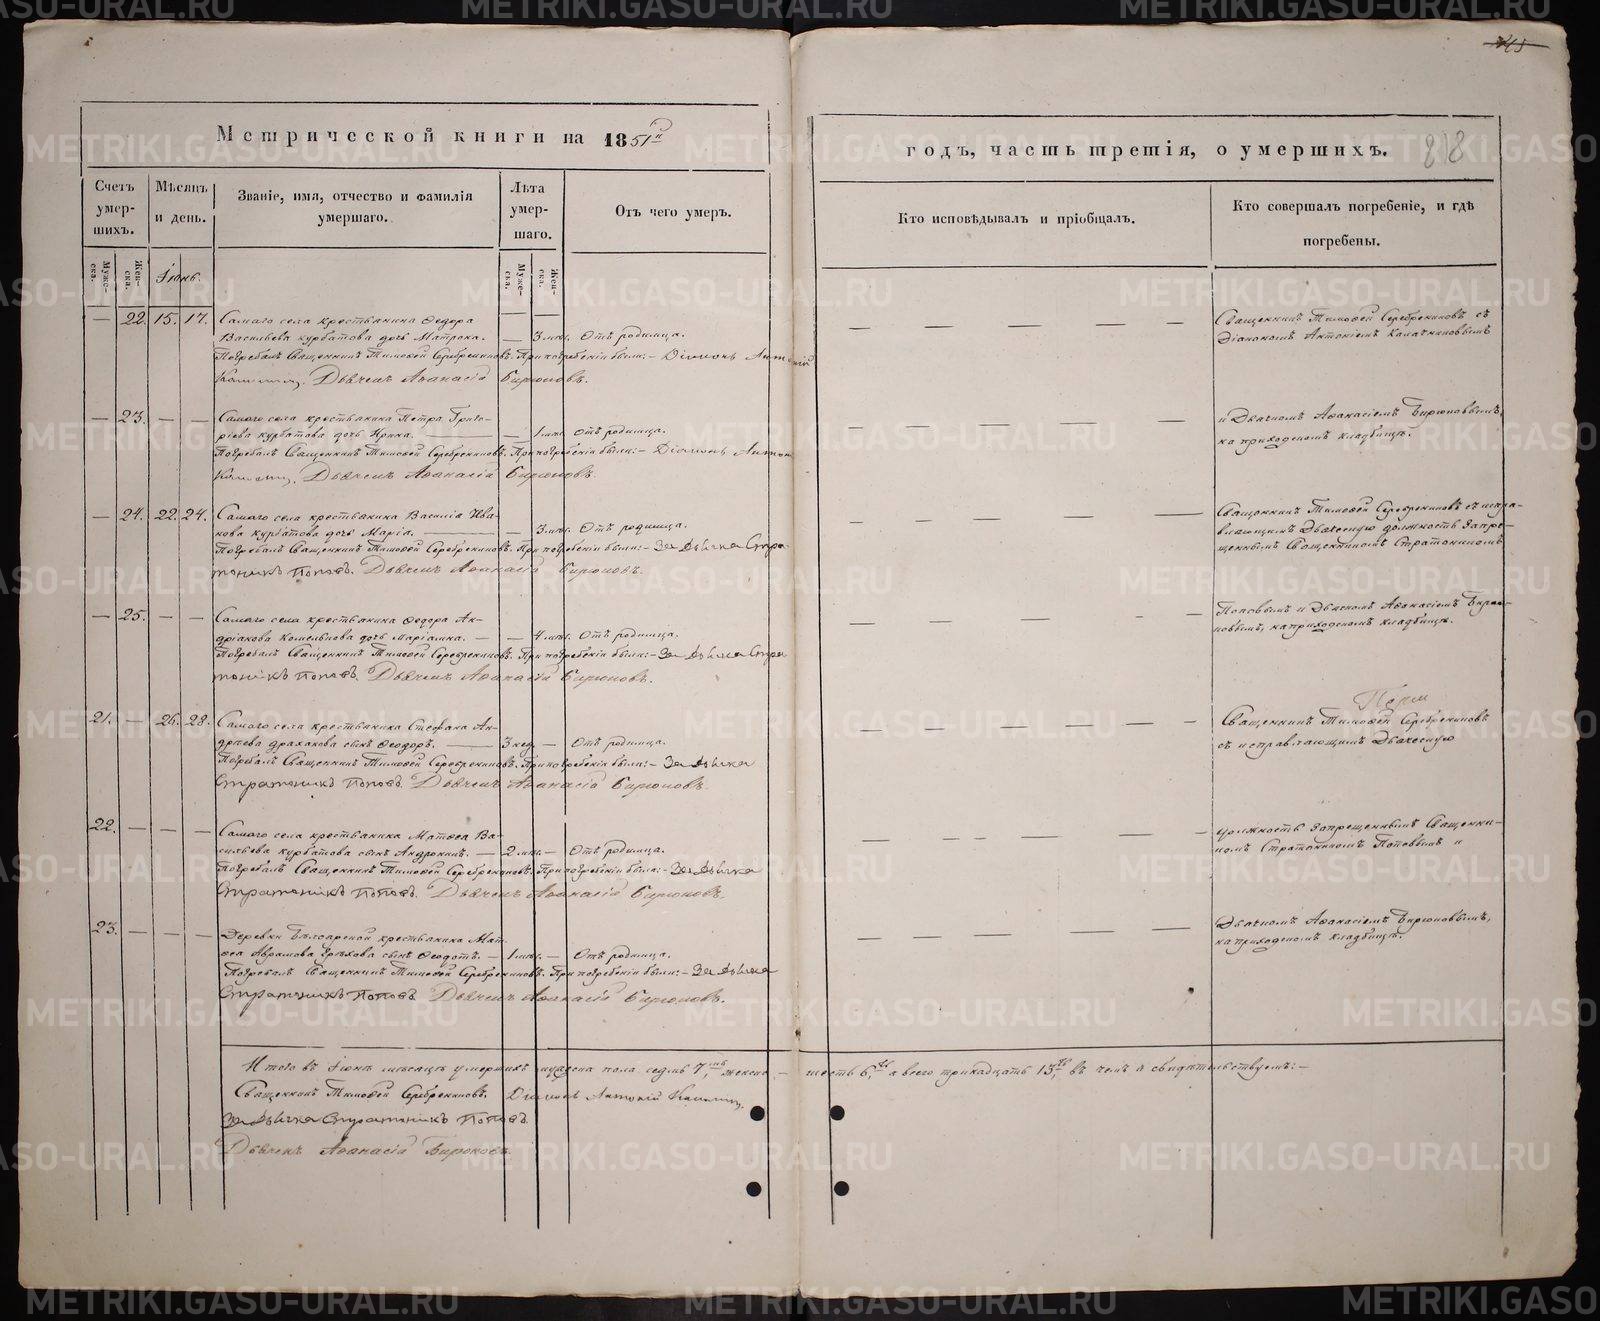 Метрической книги на 1851й
годъ, часть третія, о умершихъ.
Счетъ умер-шихъ.
Мѣсяцъ и день.
Званіе, имя, отчество и фамилія умершаго.
Лѣта умер-шаго.
Отъ чего умеръ.
Кто исповѣдывалъ и пріобщалъ.
Кто совершалъ погребеніе, и гдѣ погребены.
Муже-ска.
Жен-ска.
Іюнь.
Муже-ска.
Жен-ска.
— 22. 15. 17. Самаго села крестьянина Ѳедора
Васильева Курбатова дочь Матрона. — 3 мѣс. Отъ родимца.
Погребалъ Священникъ Тимоѳей Серебренниковъ. При погребеніи были:- Діаконъ Антоній
Дьячекъ Аѳанасій Бирюковъ.
Священникъ Тимоѳей Серебренниковъ съ
Діакономъ Антоніемъ
— 23. — — Самаго села крестьянина Петра Григо-
ріева Курбатова дочь Ирина. — 1 мѣс. Отъ родимца.
Погребалъ Священникъ Тимоѳей Серебренниковъ. При погребеніи были:- Діаконъ Антон
Дьячекъ Аѳанасій Бирюковъ.
и Дьячкомъ Аѳанасіемъ Бирюковымъ,
на приходскомъ кладбищѣ.
— 24. 22. 24. Самаго села крестьянина Василія Ива-
нова Курбатова дочь Марія. — 3 мѣс. Отъ родимца.
Погребалъ Священникъ Тимоѳей Серебренниковъ. При погребеніи были:- За дьячка Стра-
тоникъ Поповъ. Дьячекъ Аѳанасій Бирюковъ.
Священникъ Тимоѳей Серебренниковъ съ испра-
вляющимъ Дьяческую должность Запре-
щеннымъ Священникомъ Стратоникомъ
— 25. — — Самаго села крестьянина Ѳедора Ан-
дріанова дочь Маріамна. — — 4 мѣс. Отъ родимца.
Погребалъ Священникъ Тимоѳей Серебренниковъ. При погребеніи были:- За дьячка Стра
тоникъ Поповъ. Дьячекъ Аѳанасій Бирюковъ.
Поповымъ и Дьячкомъ Аѳанасіемъ Бирю-
ковымъ, на приходскомъ кладбищѣ.
21. — 26. 28. Самаго села крестьянина Стефана Ан-
дреева сынъ Ѳеодоръ. — 3 нед. — Отъ родимца.
Погребалъ Священникъ Тимоѳей Серебренниковъ. При погребеніи были:- За дьячка
Стратоникъ Поповъ. Дьячекъ Аѳанасій Бирюковъ.
Священникъ Тимоѳей Серебренниковъ
съ исправляющимъ Дьяческую
22. — — — Самаго села крестьянина Матѳея Ва-
сильева Курбатова сынъ Андроникъ. — 2 мѣс. — Отъ родимца.
Погребалъ Священникъ Тимоѳей Серебренниковъ. При погребеніи были:- За дьячка
Стратоникъ Поповъ. Дьячекъ Аѳанасій Бирюковъ.
должность Запрещеннымъ Священни-
комъ Стратоникомъ Поповымъ и
23. — — — Деревни крестьянина Мат-
ѳея Аврамова сынъ Ѳеодотъ. — 1 мѣс. — Отъ родимца.
Погребалъ Священникъ Тимоѳей Серебренниковъ. При погребеніи были:- За дьячка
Стратоникъ Поповъ. Дьячекъ Аѳанасій Бирюковъ.
Дьячкомъ Аѳанасіемъ Бирюковымъ,
на приходскомъ кладбищѣ.
Итого въ Іюнѣ мѣсяцѣ умершихъ мужеска пола седмь 7, женска — шесть 6, а всего тринадцать 13, въ чемъ и свидѣтельствуемъ:-
Священникъ Тимоѳей Серебренниковъ. Діаконъ Антоній
За дьячка Стратоникъ Поповъ.
Дьячекъ Аѳанасій Бирюковъ.
METRIKI.GASO-URAL.RU